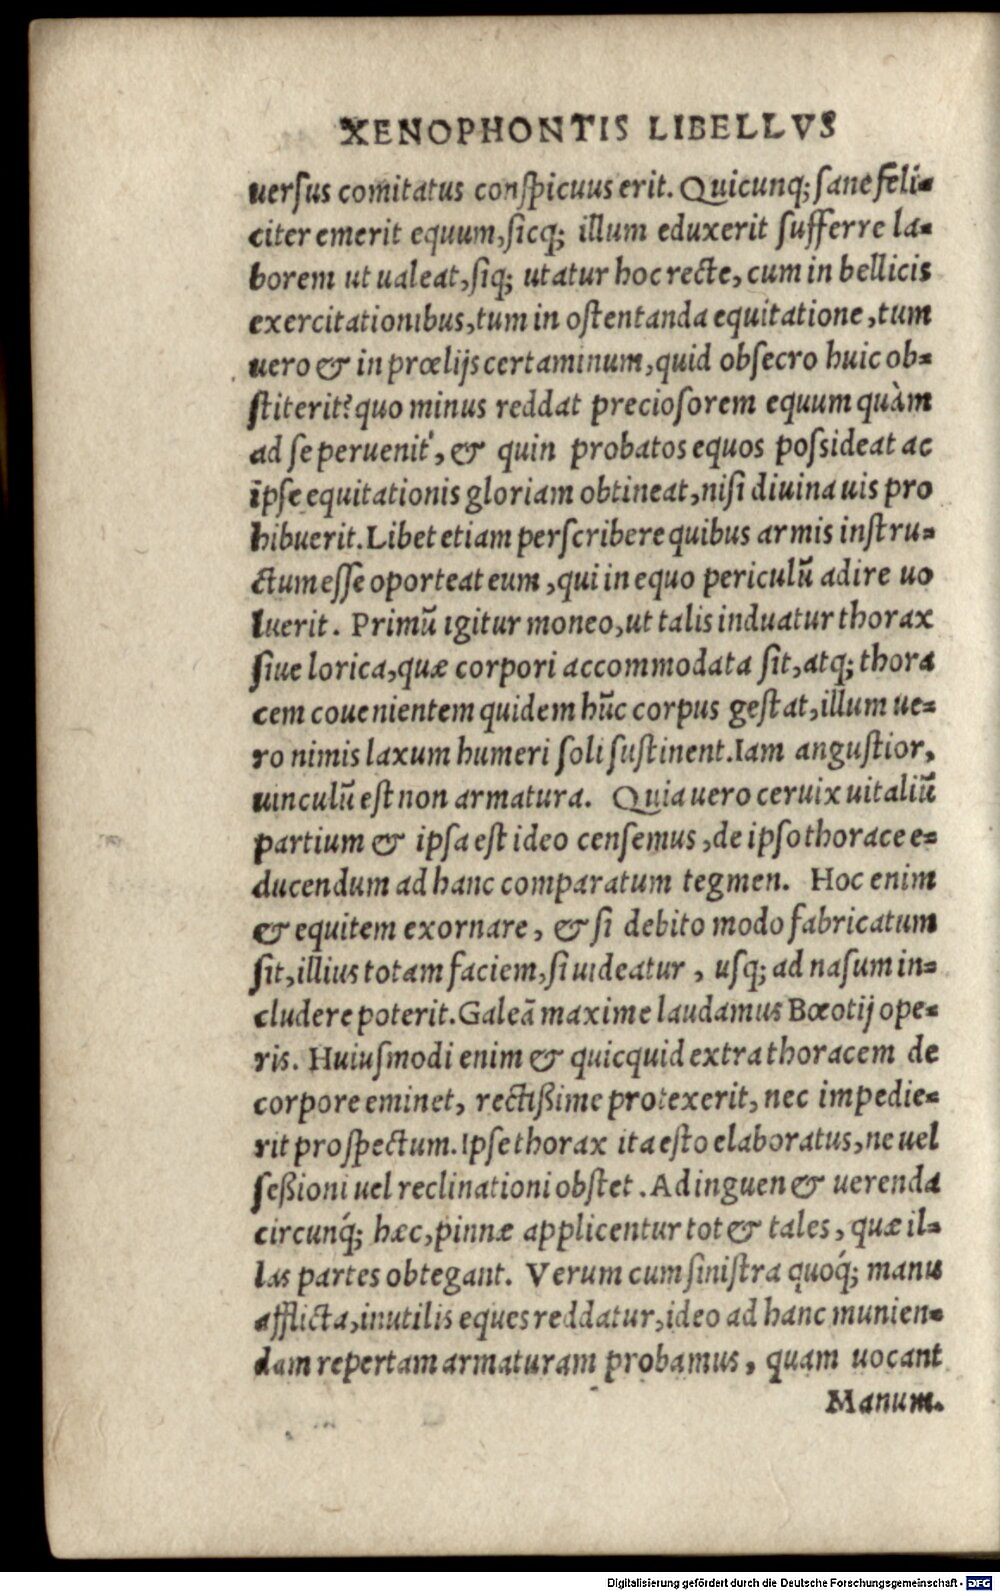 XENOPHONTIS LIBELLVS
uersus comitatus conspicuus erit. Quicunq; sane feli-
citer emerit equum, sicq; illum eduxerit sufferre la-
borem ut ualeat, siq; utatur hoc recte, cum in bellicis
exercitationibus, tum in ostentanda equitatione, tum
uero & in prœlijs certaminum, quid obsecro huic ob-
stiterit? quo minus reddat preciosorem equum quàm
ad se peruenit, & quin probatos equos possideat ac
ipse equitationis gloriam obtineat, nisi diuina uis pro
hibuerit. Libet etiam perscribere quibus armis instru-
ctum esse oporteat eum, qui in equo periculũ adire uo
luerit. Primũ igitur moneo, ut talis induatur thorax
siue lorica, quæ corpori accommodata sit, atq; thora
cem couenientem quidem hũc corpus gestat, illum ue-
ro nimis laxum humeri soli sustinent. Iam angustior,
uinculũ est non armatura. Quia uero ceruix uitaliũ
partium & ipsa est ideo censemus, de ipso thorace e-
ducendum ad hanc comparatum tegmen. Hoc enim
& equitem exornare, & si debito modo fabricatum
sit, illius totam faciem, si uideatur, usq; ad nasum in-
cludere poterit. Galeã maxime laudamus Bœotij ope-
ris. Huiusmodi enim & quicquid extra thoracem de
corpore eminet, rectißime protexerit, nec impedie-
rit prospectum. Ipse thorax ita esto elaboratus, ne uel
seßioni uel reclinationi obstet. Ad inguen & uerenda
circunq́; hæc, pinnæ applicentur tot & tales, quæ il-
las partes obtegant. Verum cum sinistra quoq́; manu
afflicta, inutilis eques reddatur, ideo ad hanc munien-
dam repertam armaturam probamus, quam uocant
Manum.
Digitalisierung gefördert durch die Deutsche Forschungsgemeinschaft - DFG